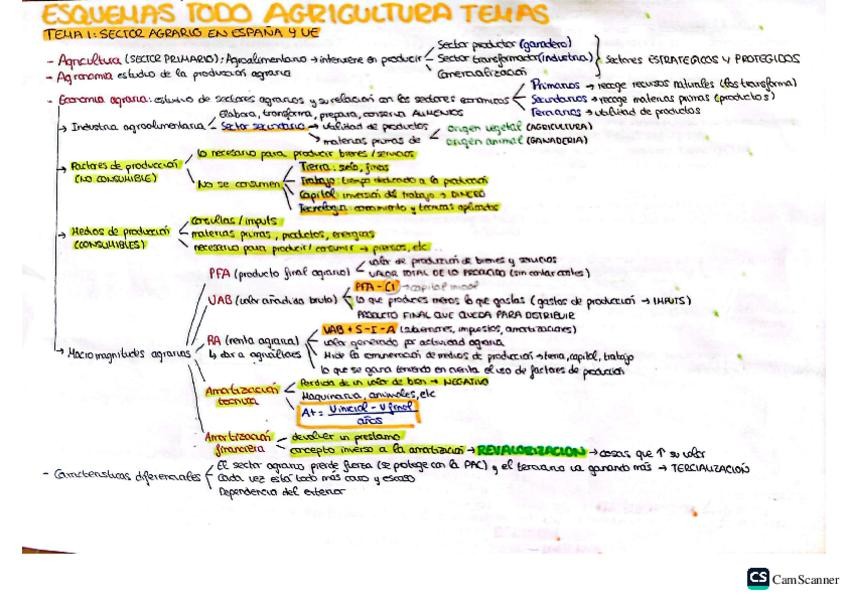 ESQUEMAS TODO AGRICULTURA TEMAS
TEMA 1: SECTOR AGRARIO EN ESPAÑA Y UE
- Agricultura (SECTOR PRIMARIO): Agroalimentario → interviene en producir
Sector productor (ganadero)
Sector transformador (industria)
Comercialización
Sectores ESTRATEGICOS Y PROTEGIDOS
- Agronomia estudio de la producción agraria
- Economia agraria: estudio de sectores agrarios y su relación con los sectores economicos
Primarios → recoge recursos naturales (los transforma)
Secundarios → recoge materias primas (productos)
Terciarios → utilidad de productos
→ Industria agroalimentaria
Elabora, transforma, prepara, conserva ALIMENTOS
Sector secundario → utilidad de productos
→ materias primas de
origen vegetal (AGRICULTURA)
origen animal (GANADERIA)
→ Factores de producción
(NO CONSUMIBLE)
lo necesario para producir bienes/servicios
No se consumen
Tierra: suelo, fincas
Trabajo: tiempo dedicado a la producción
Capital inversión del trabajo → DINERO
Tecnologia conocimiento y tecnicas aplicadas
→ Medios de producción
(CONSUMIBLES)
/ imputs
materias primas, productos, energias
necesario para producir/consumir → piensos, etc
→ Macromagnitudes agrarias
PFA (producto final agrario)
valor de producción de bienes y servicios
VALOR TOTAL DE LO PRODUCIDO (sin contar costes)
VAB (valor añadido bruto)
PFA - CI → capital inicial
lo que produces menos lo que gastas (gastos de producción → IMPUTS)
PRODUCTO FINAL QUE QUEDA PARA DISTRIBUIR
RA (renta agraria)
VAB + S - I - A (subvenciones, impuestos, amortizaciones)
valor generado por actividad agraria
Mide la remuneración de medios de producción → tierra, capital, trabajo
lo que se gana teniendo en cuenta el uso de factores de producción
Amortización
tecnica
Perdida de un valor de bien → NEGATIVO
Maquinaria, animales, etc
At = Vinicial - Vfinal
años
Amortización
financiera
devolver un prestamo
concepto inverso a la amortización → REVALORIZACION → cosas que ↑ su valor
- Caracteristicas diferenciales
El sector agrario pierde fuerza (se protege con la PAC) y el terciario va ganando más → TERCIALIZACIÓN
Cada vez está todo más caro y escaso
Dependencia del exterior
CS CamScanner